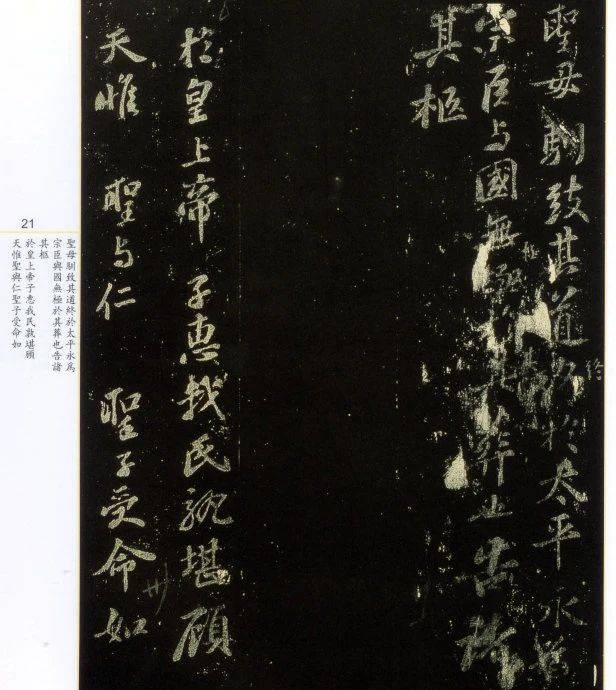 聖母馴致其道終於太平永為
宗臣与國無極於其葬也告諸
其柩
於皇上帝子惠我民孰堪顧
天惟聖与仁聖子受命如
21
聖母馴致其道終於太平永為
宗臣與國無極於其葬也告諸
其柩
於皇上帝子惠我民孰堪顧
天惟聖與仁聖子受命如